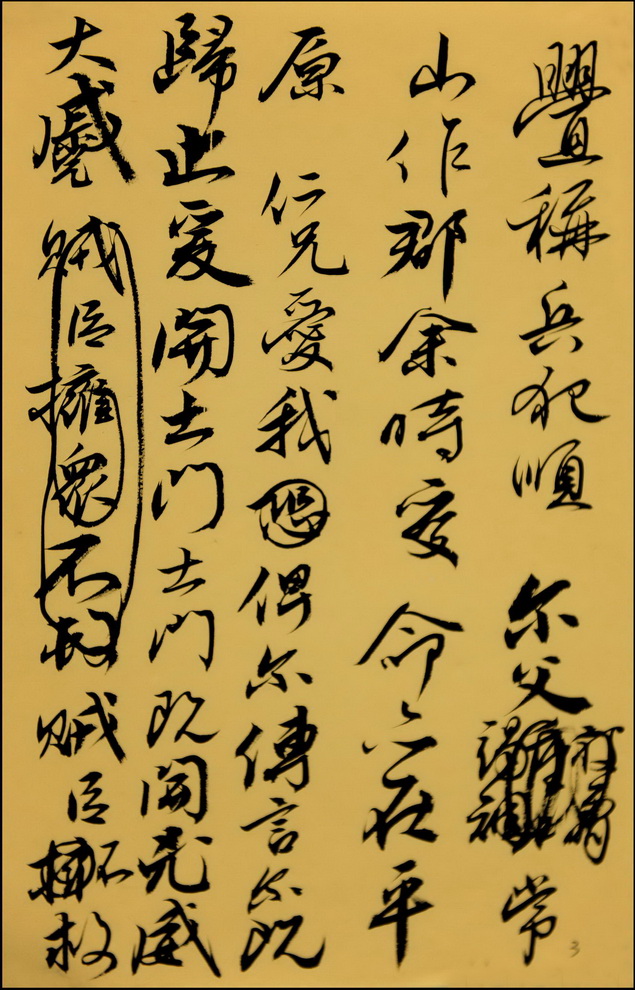 釁稱兵犯順 尔父常
山作郡余時受命亦在平
原 仁兄愛我恐俾尔傳言尔既
歸止爰開土門土門既開兇威
大蹙 賊臣擁衆不救賊臣擁不救
3